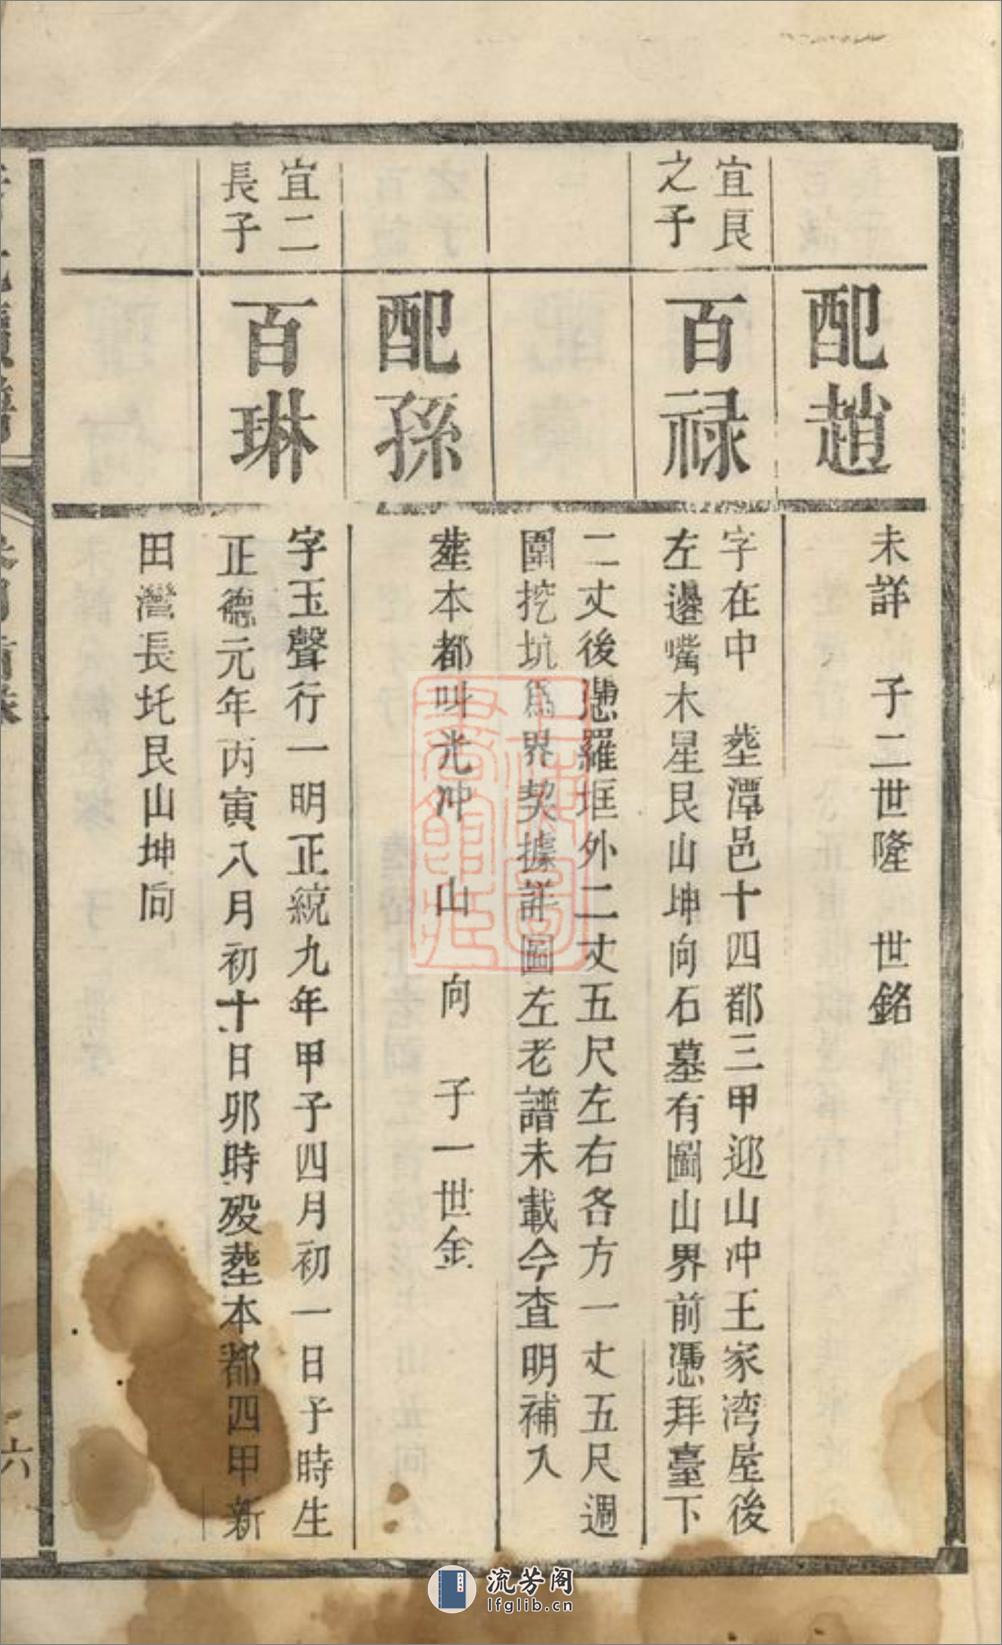 配趙
未詳　子二世隆　世銘
宜良
之子
百禄
字在中　塟潭邑十四都三甲迎山冲王家湾屋後
左邊嘴木星艮山坤向石墓有圖山界前憑拜臺下
二丈後憑羅框外二丈五尺左右各方一丈五尺週
圍挖坑爲界契據詳圖左老譜未載今查明補入
配孫
塟本都叫光冲　山　向　子一世金
宜二
長子
百琳
字玉聲行一明正統九年甲子四月初一日子時生
正德元年丙寅八月初十日卯時殁塟本都四甲新
田灣長圫艮山坤向
六
上海圖
書館藏
流芳阁
lfglib.cn